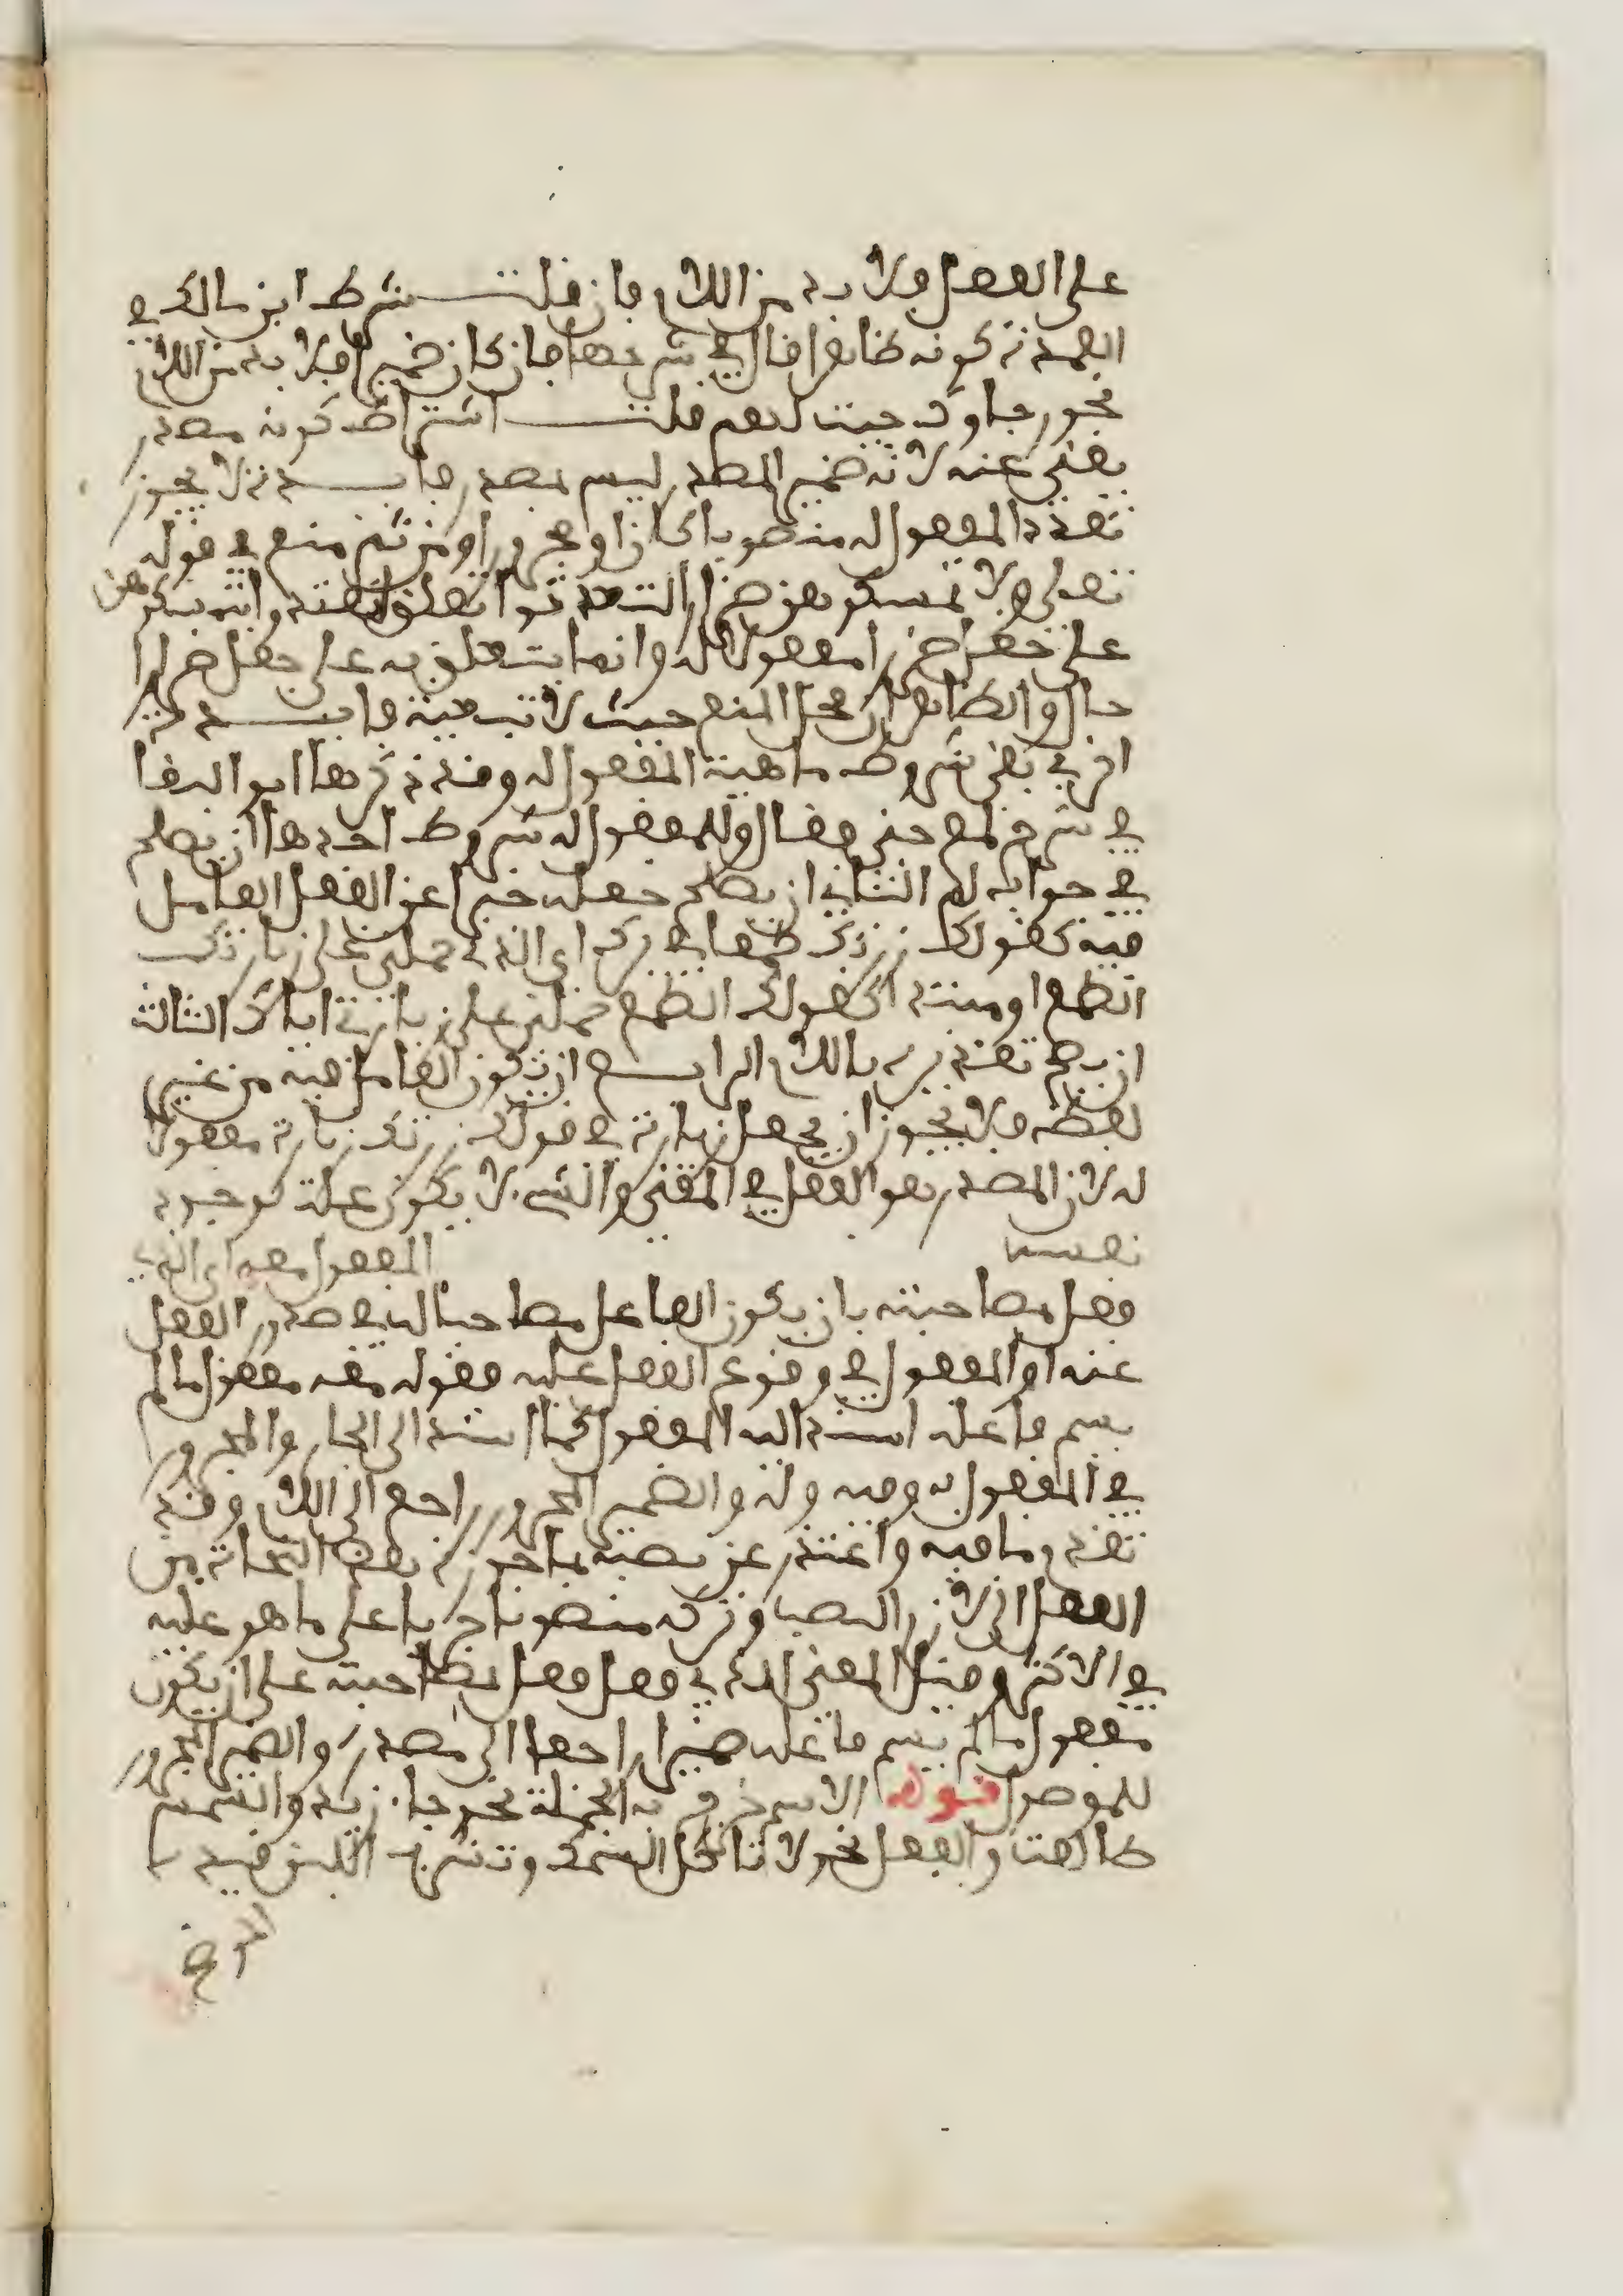 على الفعل ولا بد من اللام فان قلت شرط ابن مالك في
العمدة كونه ظاهرا قال في شرحها فان كان ضميرا فلا بد من اللام
نحو جاوك حيث لهم قلت اشتراط كونه مصدر
يغني عنه لانه ضمير المصدر ليس بمصدر فايدة لا يجوز
تعدد المفعول له منصوبا كان او مجرورا ومن ثم منع في قوله
تعالى ولا تمسكوهن ضرارا لتعتدوا تعلق لتعتدوا بتمسكوهن
على جعل ضرارا مفعولا له وانما يتعلق به على جعل ضرارا
حالا والظاهر ان محل المنع حيث لا تبعية فايدة
اخرى بقي شروط ماهية المفعول له وقد ذكرها ابو البقا
في شرح لمع جني فقال وللمفعول له شروط احدها ان يصلح
في جواب لم الثاني ان يصلح جعله خبرا عن الفعل العامل
فيه كقولك زرتك طمعا في برك اي الذي حملني على زيارتك
الطمع او مبتدا كقولك الطمع حملني على زيارتي اياك الثالث
ان يصح تقديره باللام الرابع ان يكون العامل فيه من غير
لفظه فلا يجوز ان يجعل زيارة في قولك زرتك زيارة مفعولا
له لان المصدر هو الفعل في المعنى والشيء لا يكون علة لوجود
نفسه المفعول معه اي الذي
فعل مصاحبته بان يكون الفاعل مصاحبا له في صدور الفعل
عنه او المفعول في وقوع الفعل عليه فقوله معه مفعول ما لم
يسم فاعله اسند اليه المفعول كما اسند الى الجار والمجرور
في المفعول به وفيه وله والضمير المجرور راجع الى اللام وقد
تقدم ما فيه واعتذر عن نصبه بما جوزه بعض النحاة من
الفعل الى لازم النصب وتركه منصوبا جريا على ما هو عليه
في الاكثر وقيل المعنى الذي فعل فعل بمصاحبته على ان يكون
مفعول ما لم يسم فاعله ضميرا راجعا الى مصدره والضمير المجرور
للموصول قوله الاسم خرج به الجملة نحو جاء زيد والشمس
طالعة والفعل نحو لا تاكل السمك وتشرب اللبن فيه